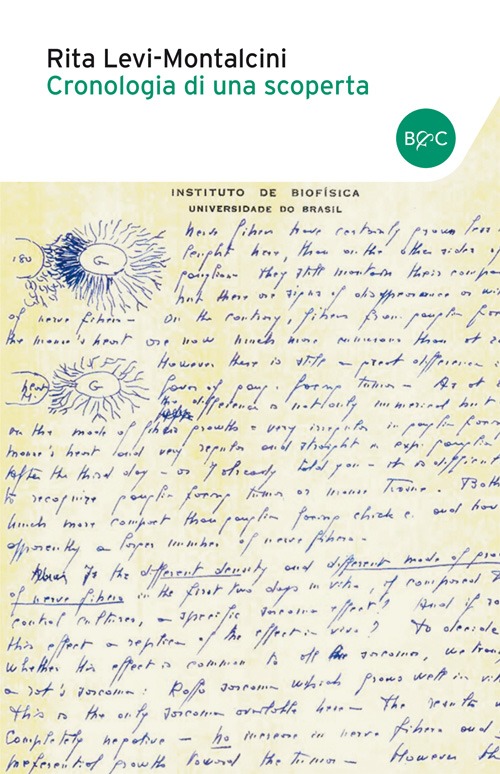 Rita Levi-Montalcini
Cronologia di una scoperta
B&C
INSTITUTO DE BIOFÍSICA
UNIVERSIDADE DO BRASIL
nerve fibers have certainly grown less
lenght here, than on the other sides of
ganglion - They still maintain their
but there are signs of disappearance or
180
G
of nerve fibers - On the contrary, fibers from ganglia
the mouse's heart are now much more numerous than at
However there is still a great difference
heart
M.
G
favor of gang. facing tumor - As at
the difference is not only numerical but
on the mode of fibers growth = very irregular in ganglia
mouse's heart and very regular and straight in exp. ganglia
After the third day - as I already told you - it is difficult
to recognize ganglia facing tumor or mouse tissue. Both
much more compact than ganglia facing chick e. and
apparently a larger number of nerve fibers -
Is the different density and different mode of
of nerve fibers in the first two days in vitro, if compared
control cultures, a specific sarcoma effect? And if
this effect a replica of the effect in vivo? To decide
whether this effect is common to all sarcomas, we
a rat's sarcoma: Raffo sarcoma which grows well in
This is the only sarcoma available here - The results
completely negative - no increase in nerve fibers and
preferential growth toward the tumor - However